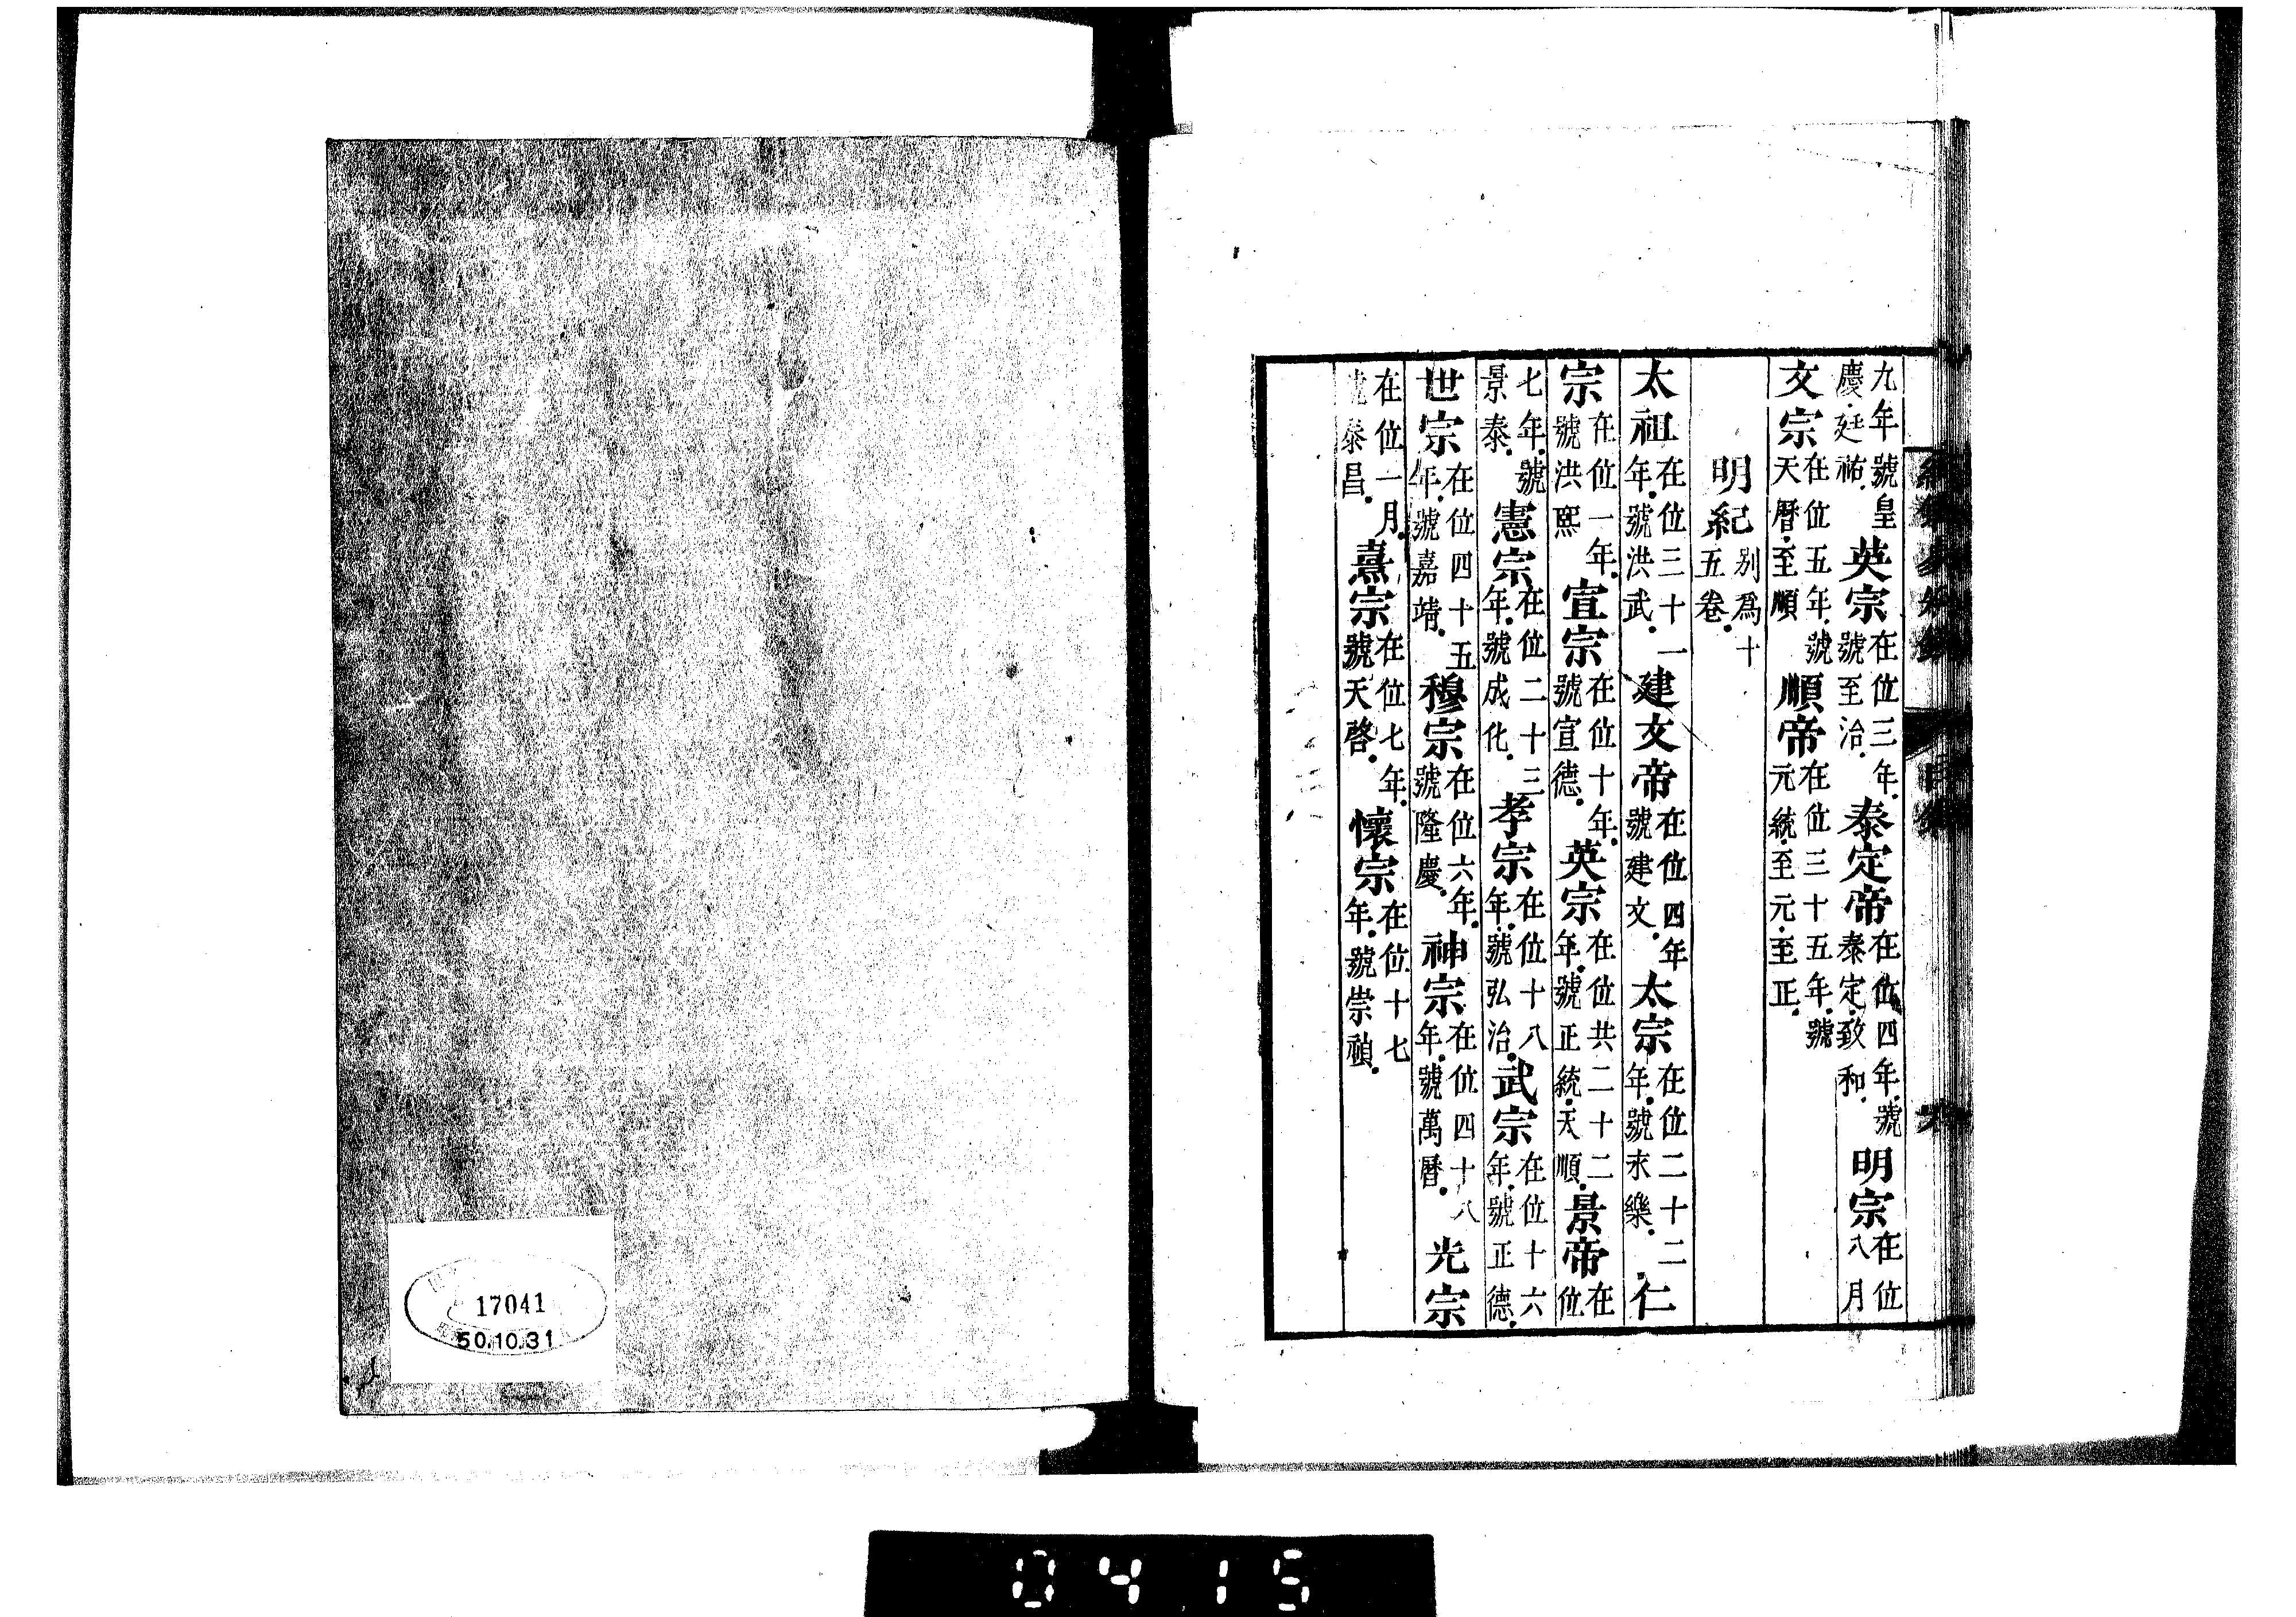 九年號皇慶延祐英宗在位三年號至治泰定帝在位四年號泰定致和明宗在位八月
文宗在位五年號天曆至順順帝在位三十五年號元統至元至正
明紀別爲十五卷
太祖在位三十一年號洪武建文帝在位四年號建文太宗在位二十二年號永樂仁
宗在位一年號洪熙宣宗在位十年號宣德英宗在位共二十二年號正統天順景帝在位
七年號景泰憲宗在位二十三年號成化孝宗在位十八年號弘治武宗在位十六年號正德
世宗在位四十五年號嘉靖穆宗在位六年號隆慶神宗在位四十八年號萬曆光宗
在位一月號泰昌熹宗在位七年號天啓懷宗在位十七年號崇禎
17041
50.10.31
0415